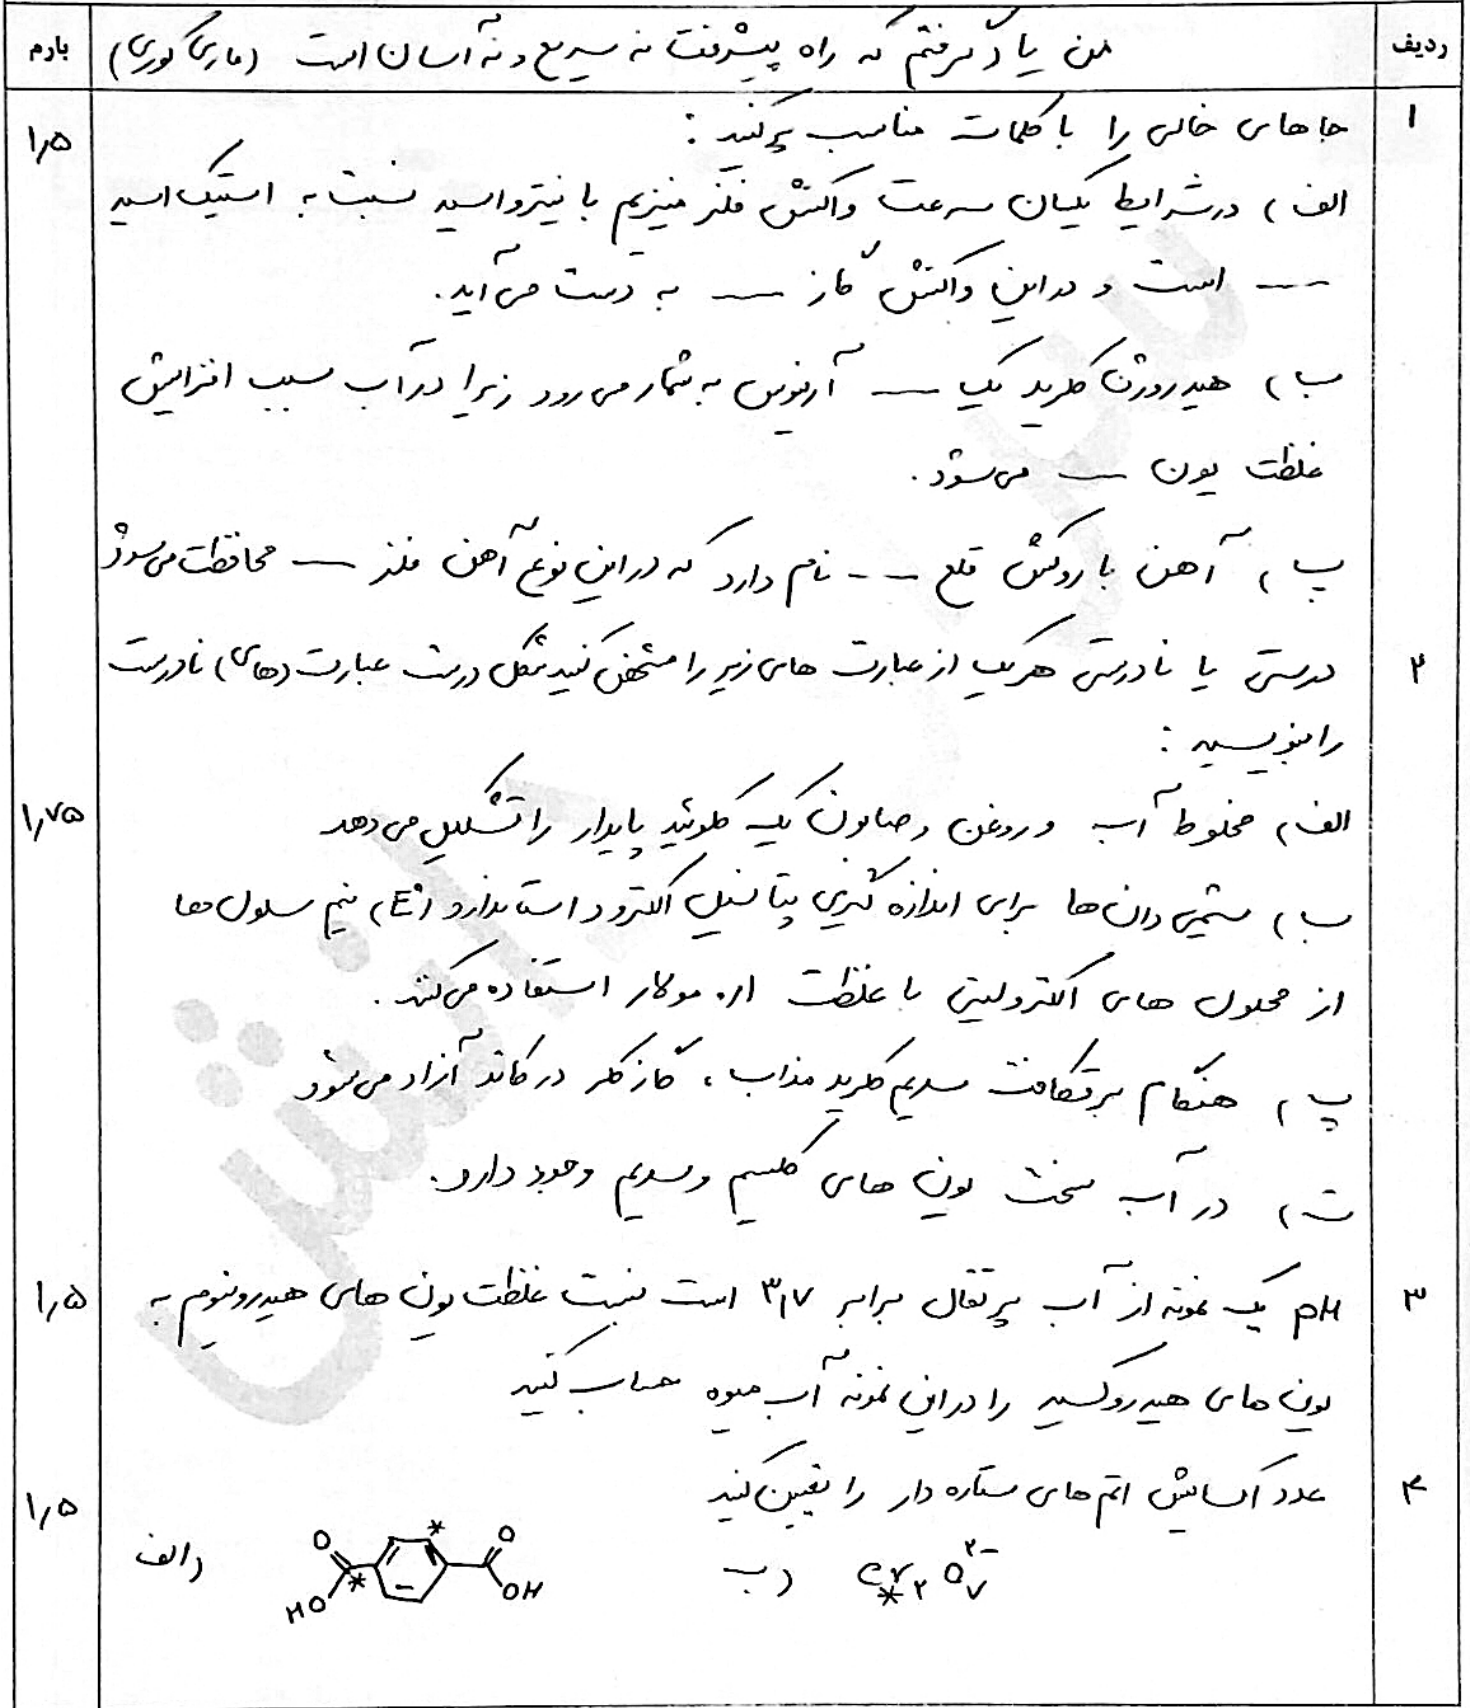 ردیف
من یاد گرفتم که راه پیشرفت نه سریع و نه آسان است (ماری کوری)
بارم
۱
جاهای خالی را با کلمات مناسب پر کنید :
۱٫۵
الف) در شرایط یکسان سرعت واکنش فلز منیزیم با نیترو اسید نسبت به استیک اسید
--- است و در این واکنش گاز --- به دست می آید.
ب) هیدروژن کلرید یک --- آرنیوس به شمار می رود زیرا در آب سبب افزایش
غلظت یون --- می شود.
پ) آهن با روکش قلع --- نام دارد که در این نوع آهن فلز --- محافظت می شود
۲
درستی یا نادرستی هر یک از عبارت های زیر را مشخص کنید شکل درست عبارت (های) نادرست
را بنویسید :
۱٫۷۵
الف) مخلوط آب و روغن و صابون یک کلوئید پایدار را تشکیل می دهد
ب) شیمی دان ها برای اندازه گیری پتانسیل الکترود استاندارد (E°) نیم سلول ها
از محلول های الکترولیتی با غلظت ۰٫۱ مولار استفاده می کنند.
پ) هنگام برقکافت سدیم کلرید مذاب، گاز کلر در کاتد آزاد می شود
ت) در آب سخت یون های کلسیم و سدیم وجود دارد.
۳
pH یک نمونه از آب پرتقال برابر ۳٫۷ است نسبت غلظت یون های هیدرونیوم به
۱٫۵
یون های هیدروکسید را در این نمونه آب میوه حساب کنید
۴
عدد اکسایش اتم های ستاره دار را تعیین کنید
۱٫۵
الف) O OH * O HO *
ب) Cr₂O₇²⁻ *